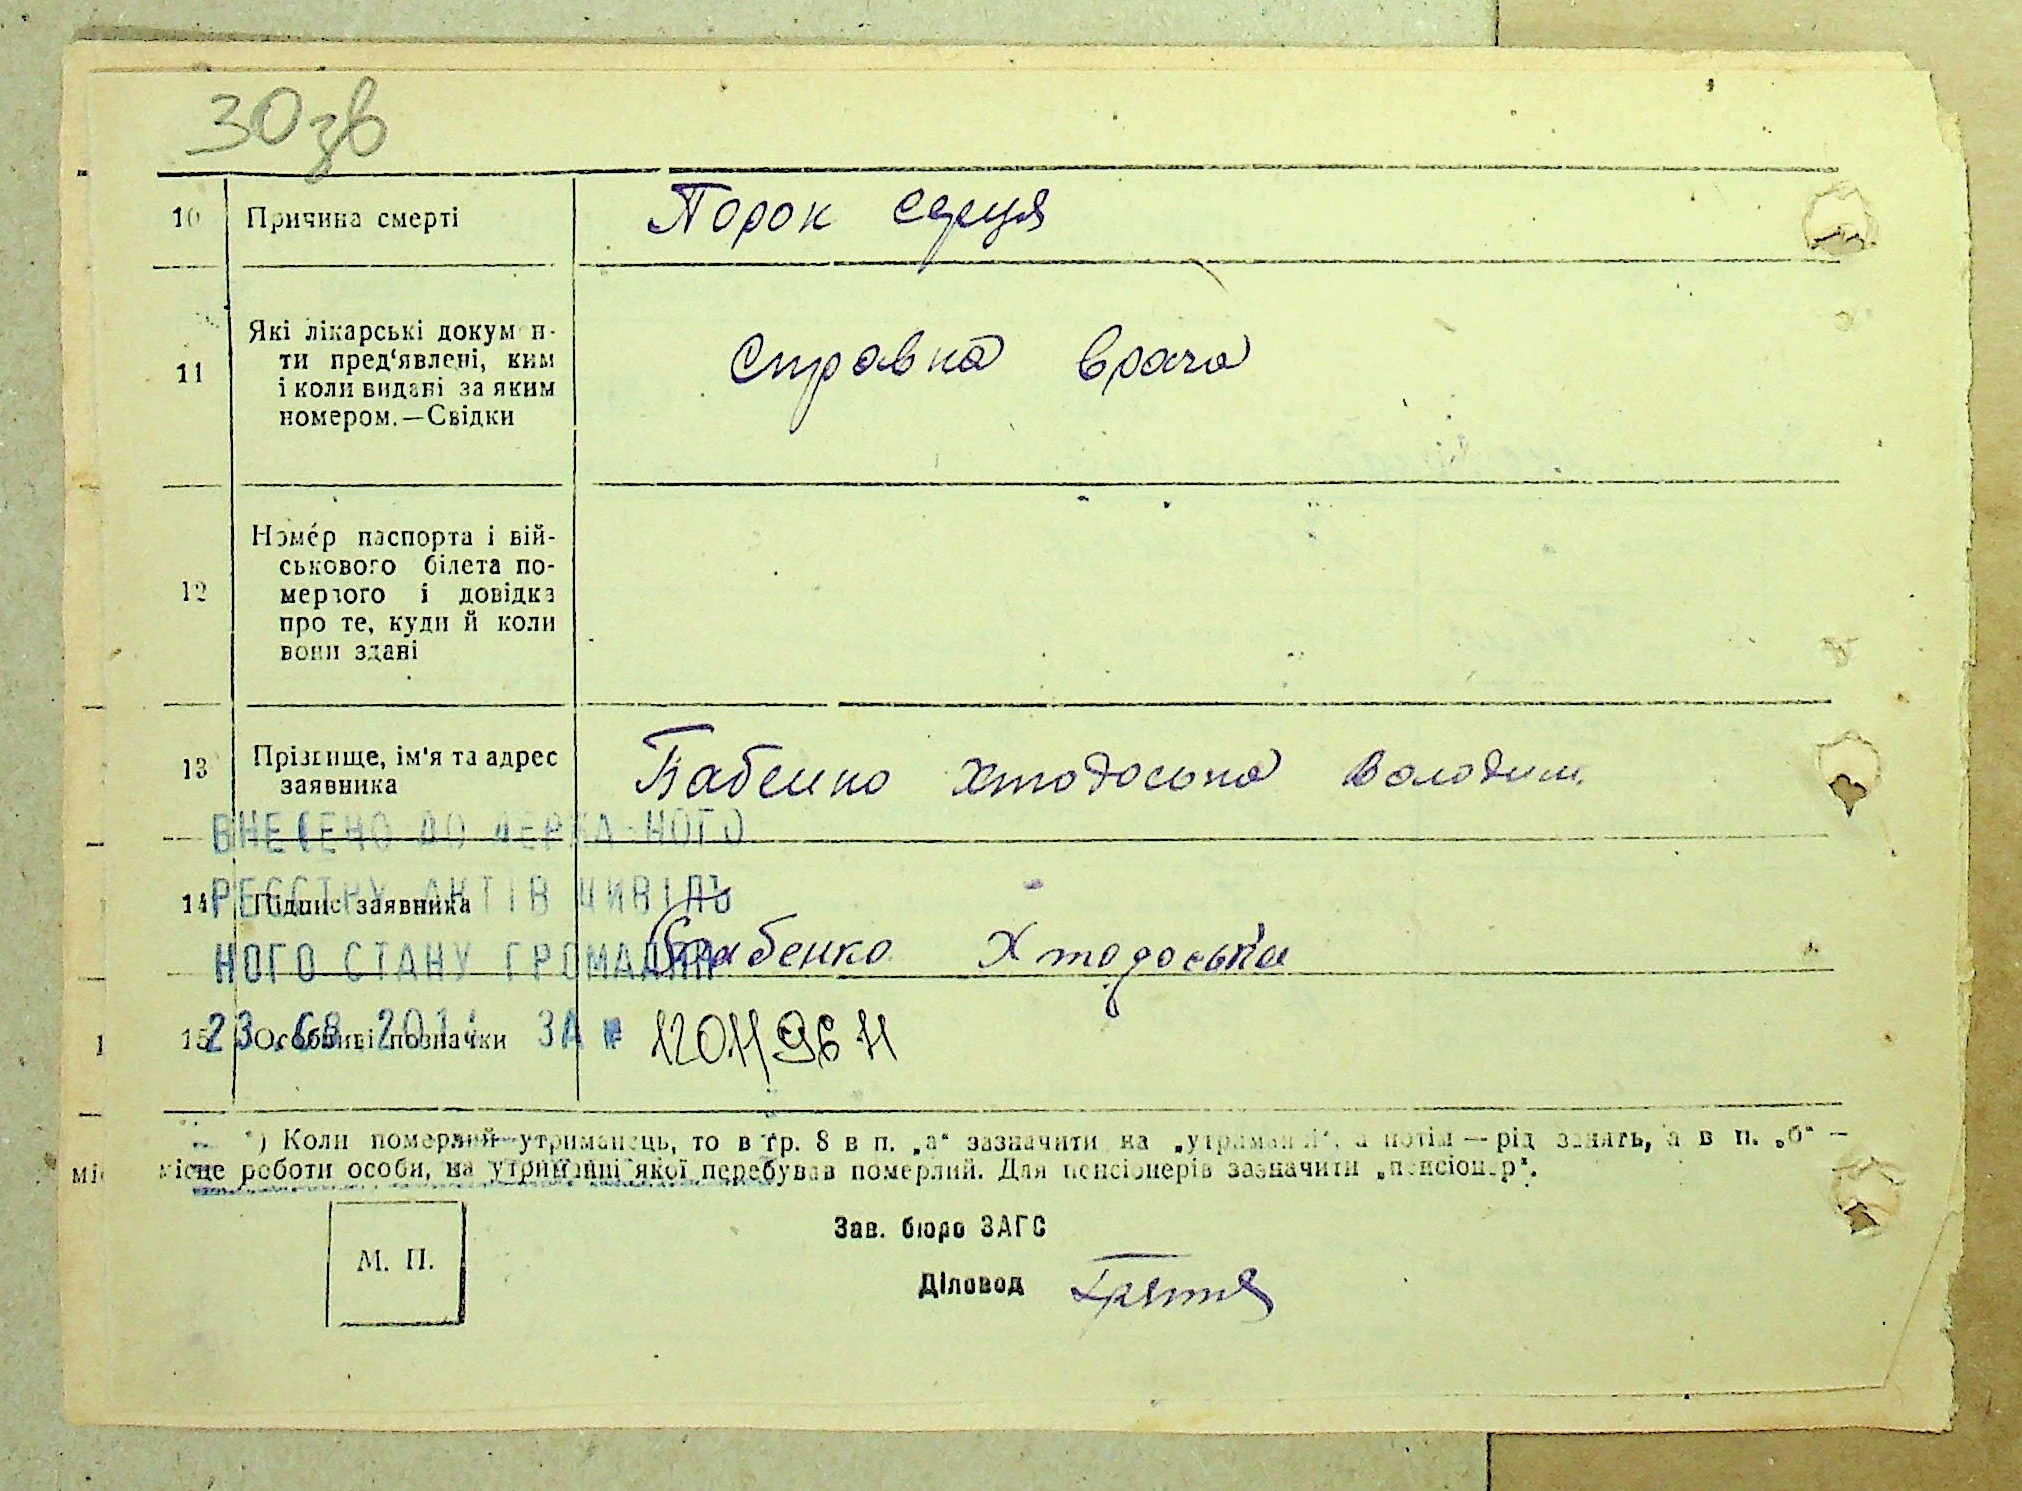 30зв
10 Причина смерті Порок серця
11 Які лікарські докумен-
ти пред'явлені, ким
і коли видані за яким
номером.—Свідки
Справка врача
12 Номéр паспорта і вій-
ськового білета по-
мерлого і довідка
про те, куди й коли
вони здані
13 Прізвище, ім'я та адрес
заявника
Бабенко Хтодоська Володим.
ВНЕСЕНО ДО ДЕРЖАВНОГО
РЕЄСТРУ АКТІВ ЦИВІЛЬ
14 Підпис заявника
НОГО СТАНУ ГРОМАДЯН
Бабенко Хтодоська
15 Особливі позначки
23 ЗА №
*) Коли померлий утриманець, то в гр. 8 в п. „а" зазначити на „утриманні", а потім — рід занять, а в п. „б" —
місце роботи особи, на утриманні якої перебував померлий. Для пенсіонерів зазначити „пенсіонер".
М. П.
Зав. бюро ЗАГС
Діловод